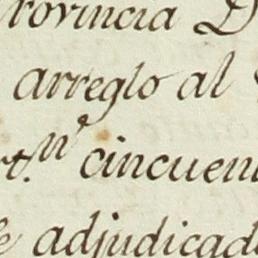 rovincia D
arreglo al
rt.n cincuen
e adjudicad